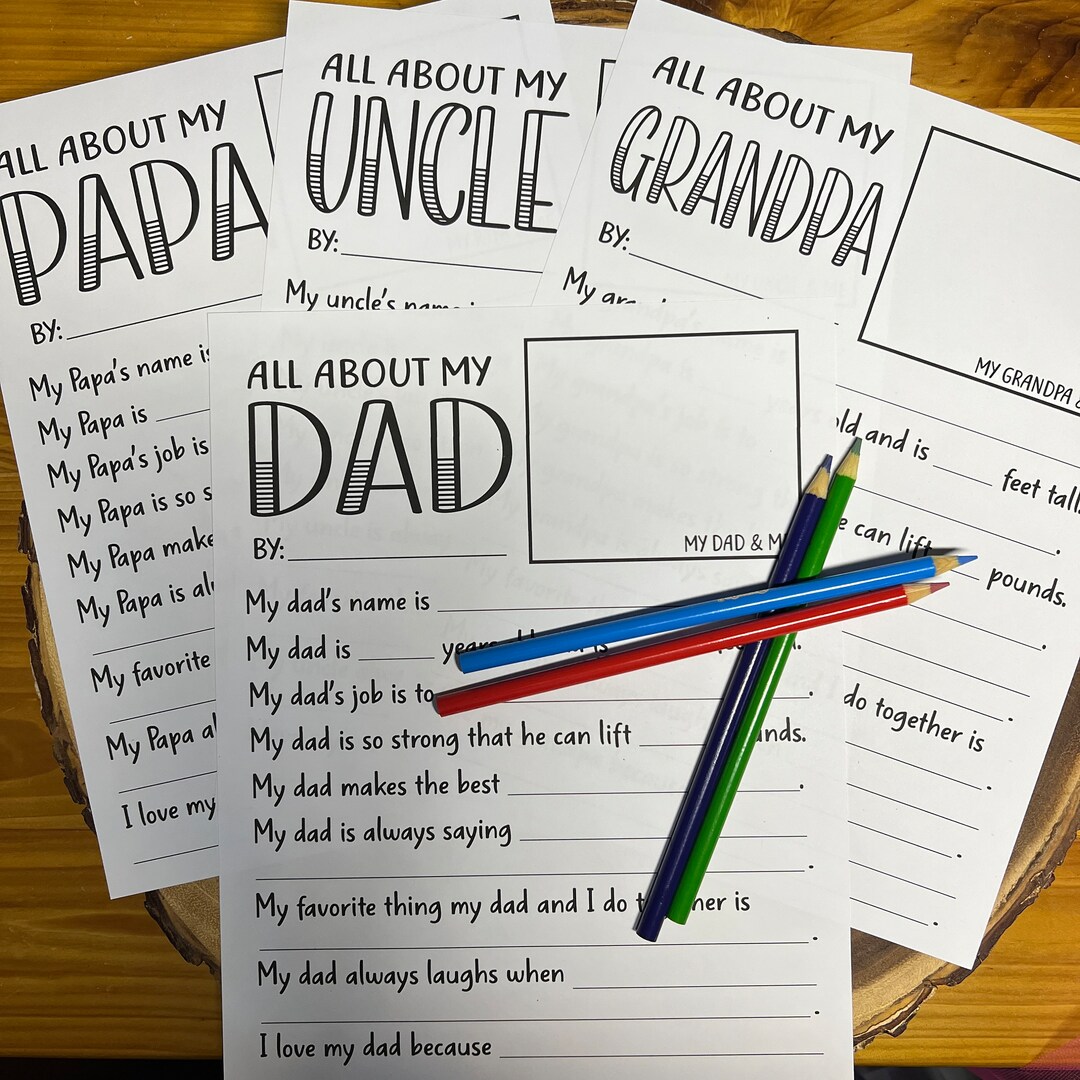 ALL ABOUT MY
PAPA
BY:
My Papa's name is
My Papa is
My Papa's job is
My Papa is so s
My Papa make
My Papa is al
My favorite
My Papa al
I love my
ALL ABOUT MY
UNCLE
BY:
My uncle's name
ALL ABOUT MY
GRANDPA
BY:
My
MY GRANDPA &
old and is feet tall.
he can lift
pounds.
do together is
ALL ABOUT MY
DAD
BY:
MY DAD & M
My dad's name is
My dad is years
My dad's job is to
My dad is so strong that he can lift
My dad makes the best
My dad is always saying
My favorite thing my dad and I do together is
My dad always laughs when
I love my dad because